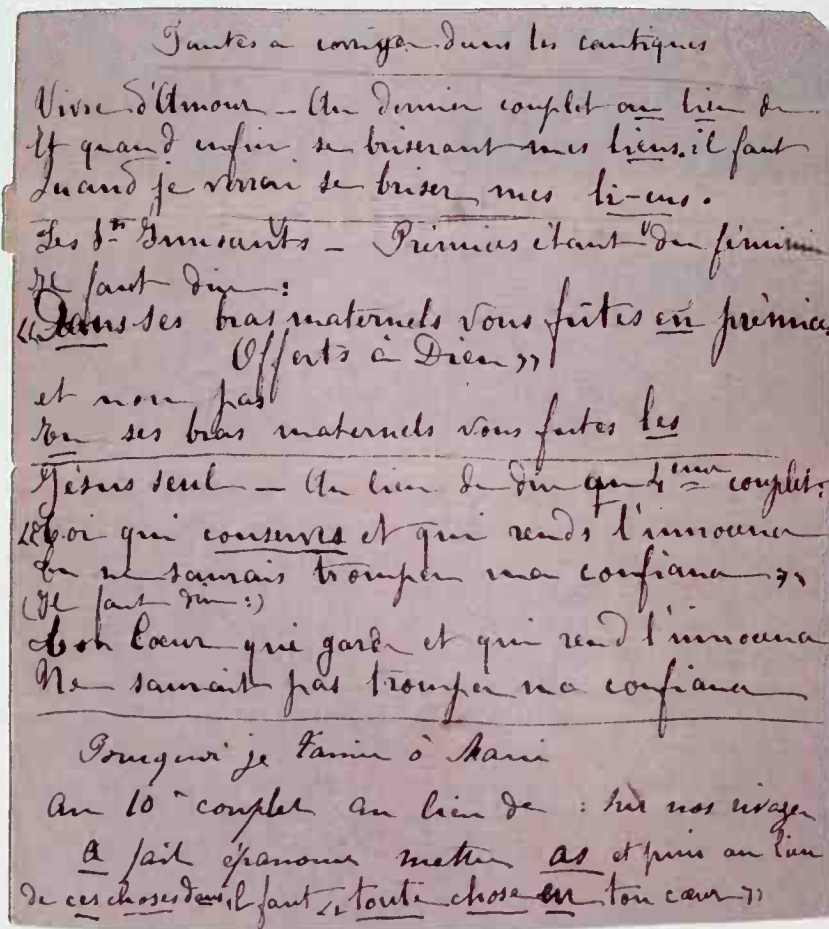 Fautes a corriger dans les cantiques
Vivre d'Amour – Au dernier couplet au lieu de
Et quand enfin se briseront mes liens. il faut
Quand je verrai se briser mes li-ens.
Les Sts Innocents – Prémices étant du féminin
Il faut dire :
«Dans ses bras maternels vous fûtes en prémices
Offerts à Dieu»
et non pas
En ses bras maternels vous futes les
Jésus seul – Au lieu de dire au 4ème couplet :
«Toi qui conserves et qui rends l'innocence
Tu ne saurais tromper ma confiance »
(Il faut dire :)
Ton Coeur qui garde et qui rend l'innocence
Ne saurait pas tromper ma confiance
Pourquoi je t'aime ô Marie
au 10e couplet au lieu de : sur nos rivages
a fait épanouir mettre as et puis au lieu
de ces choses dans, il faut «toute chose en ton cœur»